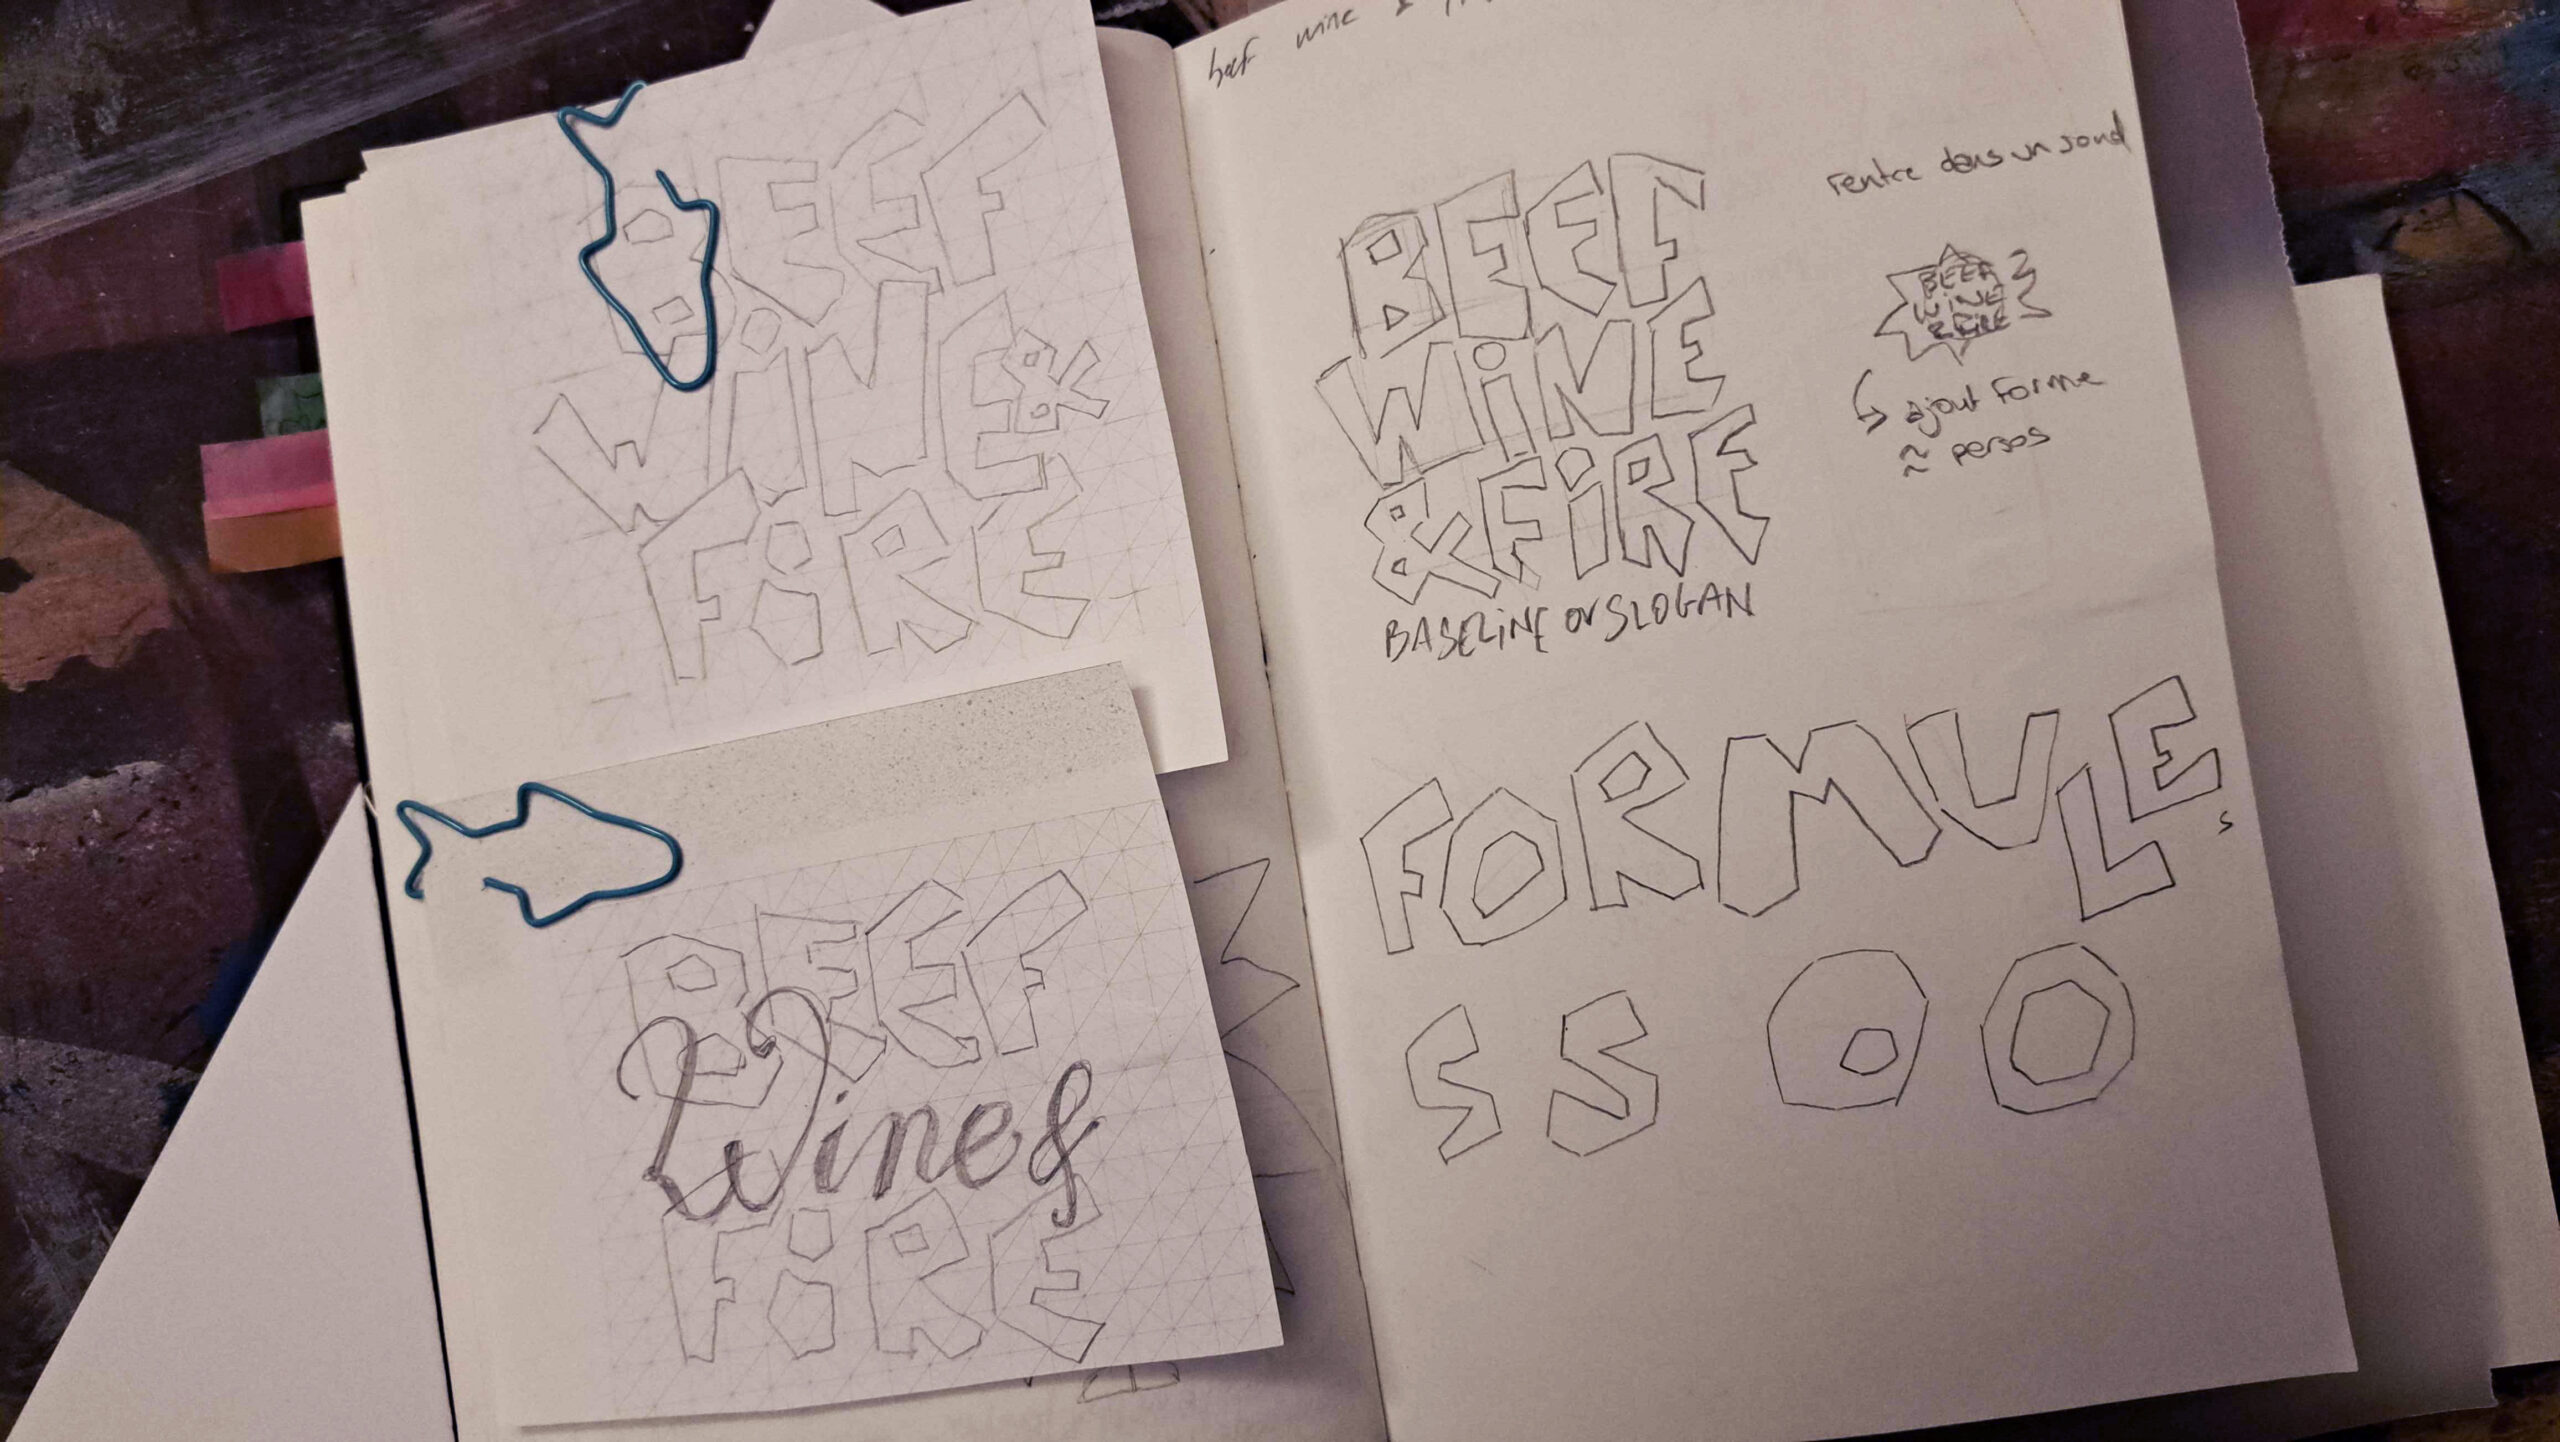 BEEF
WINE &
FIRE
BEEF
Wine &
FIRE
beef wine &
BEEF
WINE
& FIRE
BASELINE OU SLOGAN
rentre dans un rond
BEEF
WINE
& FIRE
ajout forme
≈ persos
FORMULE
s
S S O O